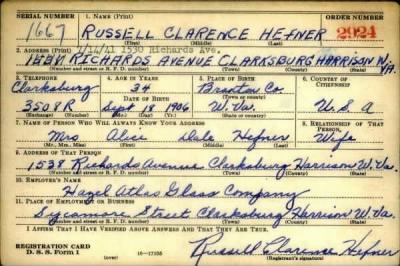 SERIAL NUMBER 1. NAME (Print) ORDER NUMBER
1667 RUSSELL CLARENCE HEFNER 2924
(First) (Middle) (Last)
2. ADDRESS (Print) 7/14/41 1530 Richards Ave.
RICHARDS AVENUE CLARKSBURG HARRISON W. VA.
(Number and street or R. F. D. number) (Town) (County) (State)
3. TELEPHONE 4. AGE IN YEARS 5. PLACE OF BIRTH 6. COUNTRY OF CITIZENSHIP
Clarksburg 34 Braxton Co.
DATE OF BIRTH (Town or county)
3508 R Sept 18 1906 W. Va. U S A
(Exchange) (Number) (Mo.) (Day) (Yr.) (State or country)
7. NAME OF PERSON WHO WILL ALWAYS KNOW YOUR ADDRESS 8. RELATIONSHIP OF THAT PERSON
Mrs Alice Dale Hefner Wife
(Mr., Mrs., Miss) (First) (Middle) (Last)
9. ADDRESS OF THAT PERSON
1538 Richards Avenue Clarksburg Harrison W. Va.
(Number and street or R. F. D. number) (Town) (County) (State)
10. EMPLOYER'S NAME
Hazel Atlas Glass Company
11. PLACE OF EMPLOYMENT OR BUSINESS
Sycamore Street Clarksburg Harrison W. Va.
(Number and street or R. F. D. number) (Town) (County) (State)
I AFFIRM THAT I HAVE VERIFIED ABOVE ANSWERS AND THAT THEY ARE TRUE.
REGISTRATION CARD Russell Clarence Hefner
D. S. S. FORM 1 (over) 16-17105 (Registrant's signature)